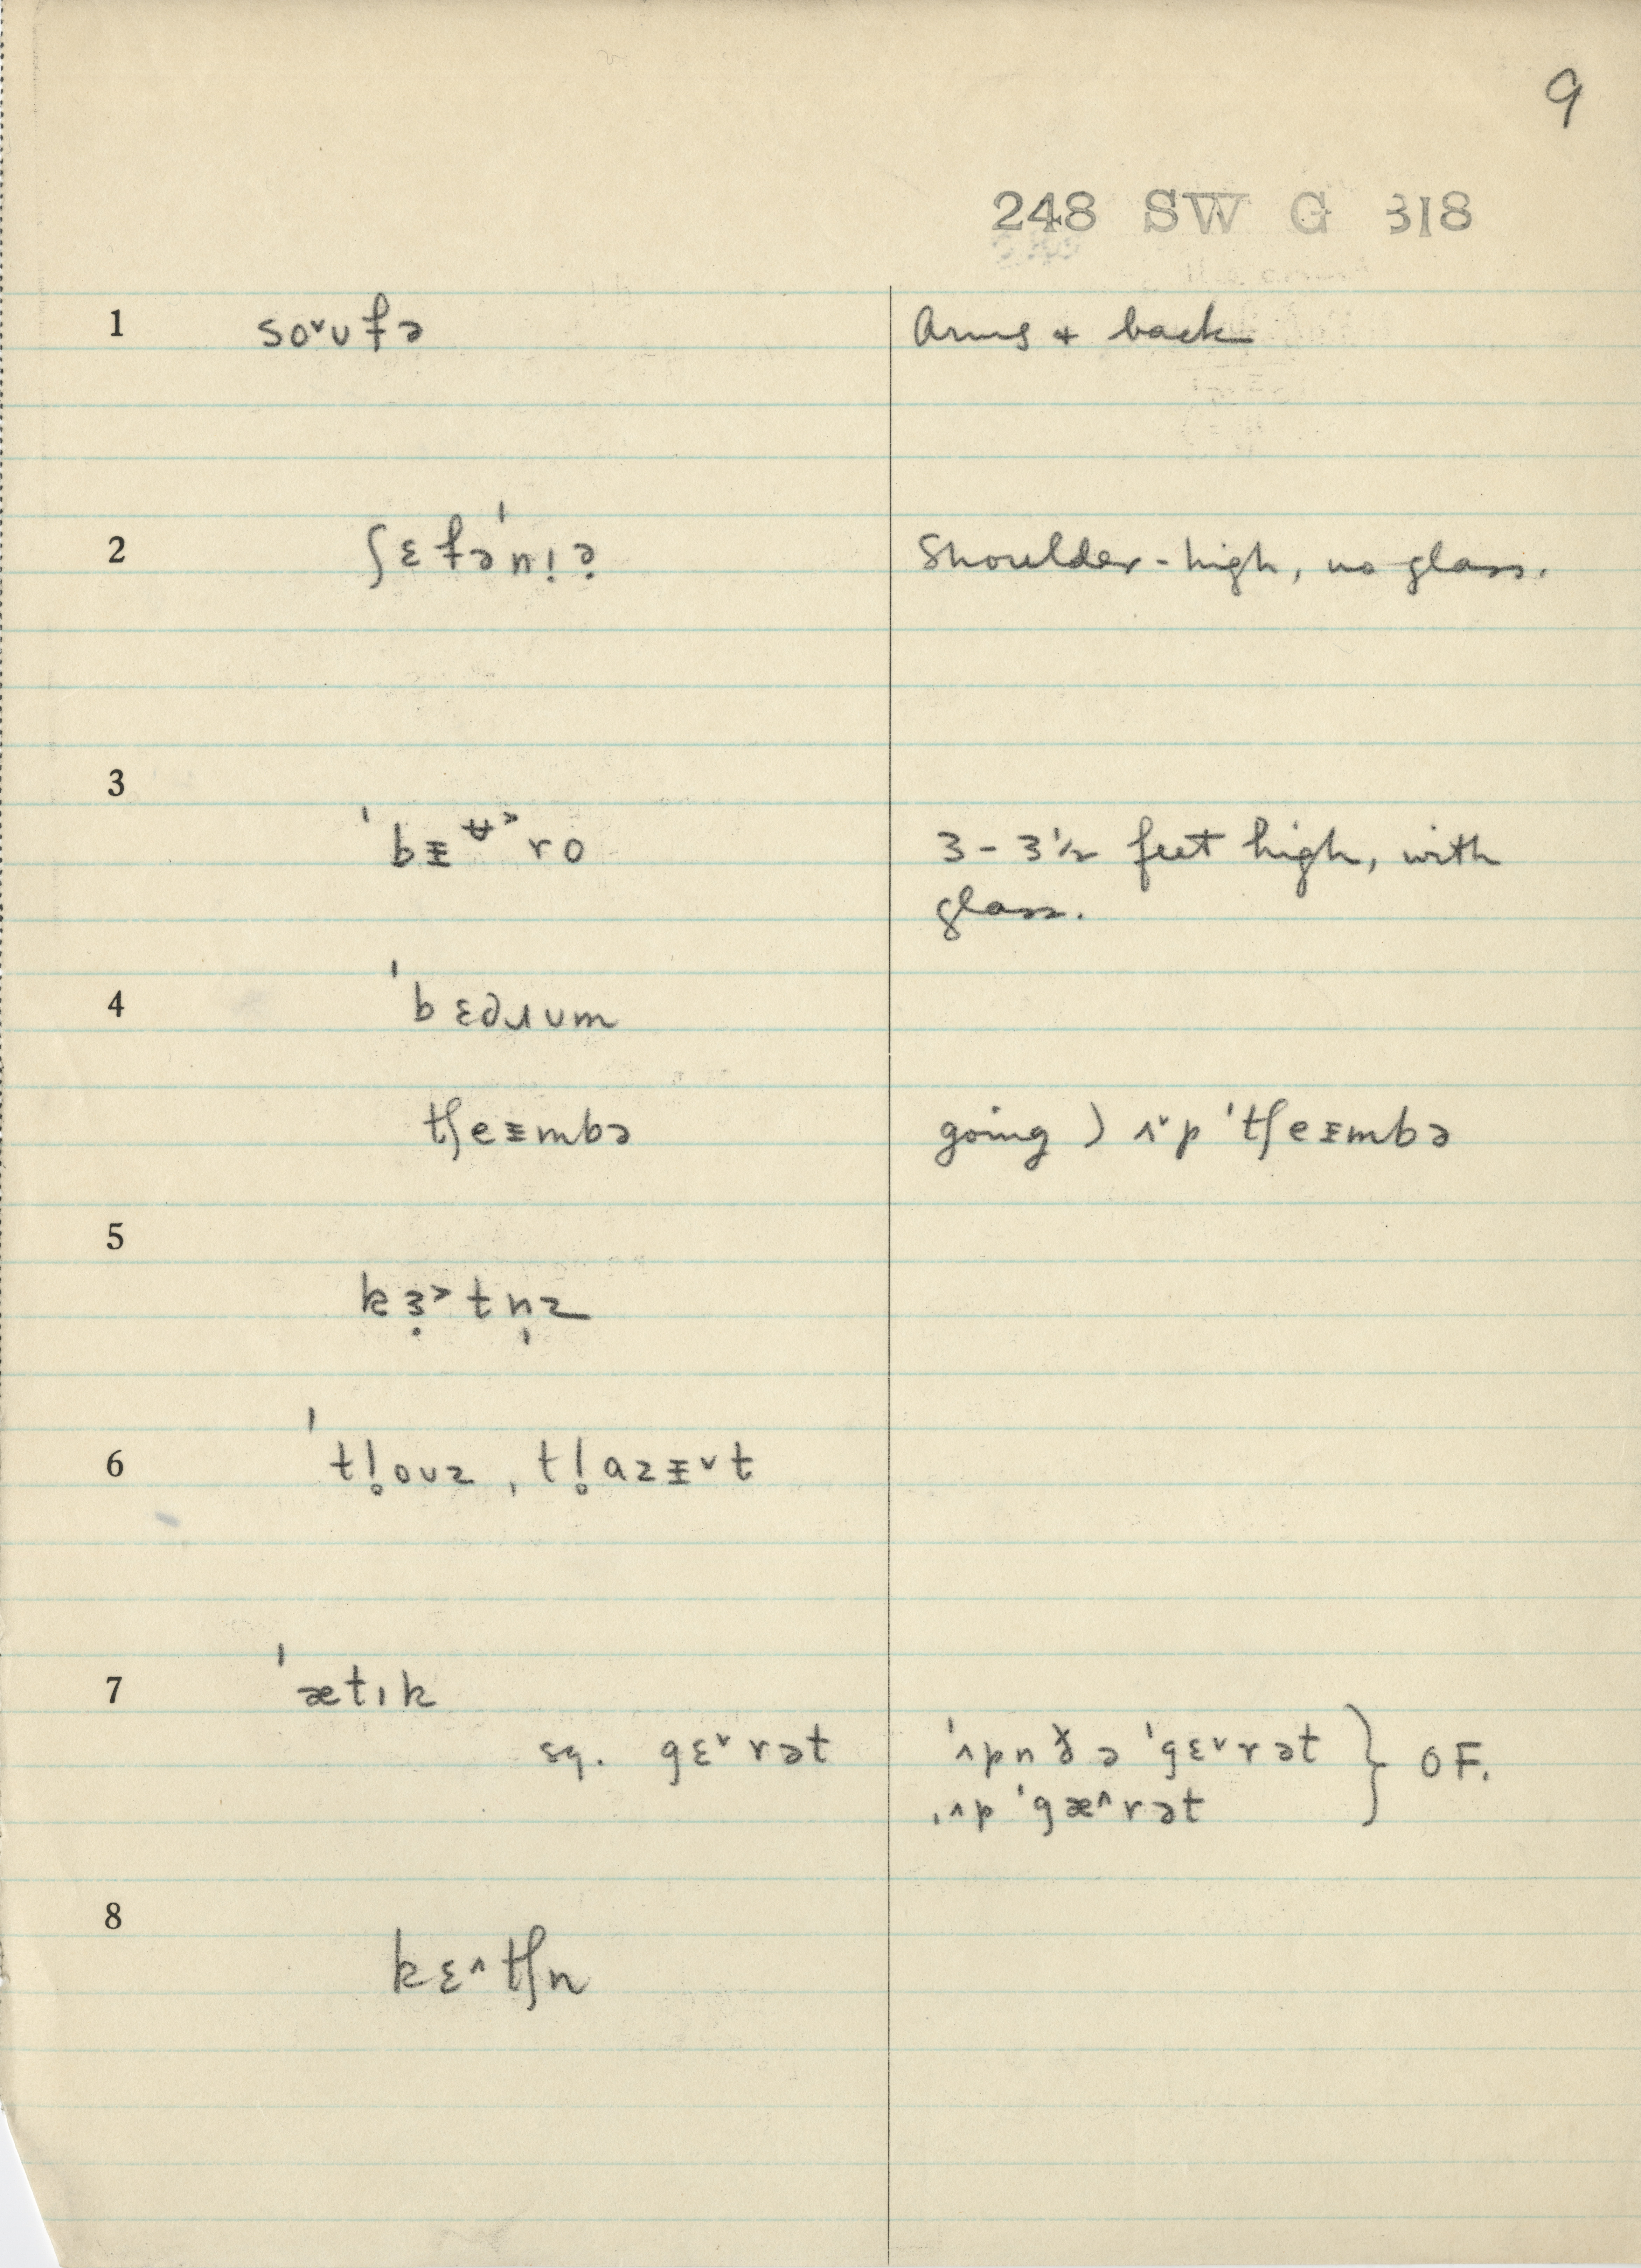 9
248 SW G 318
1 so˅ʊfə Arms + back
2 ʃɛfə'nɪə̣ Shoulder-high, no glass.
3 'bᵻ^ʉ˃ro 3 - 3½ feet high, with
glass.
4 'bɛdɹʊm
tʃeᵻmbə going ) ʌ˅p 'tʃeᵻmbə
5 kɜ̣˃tn̩z
6 'tl̥oʊz, tl̥ɑzᵻ˅t
7 'ætɪk
sq. gɛ˅rət 'ʌpn ðə 'gɛ˅rət } OF.
ˌʌp 'gæ^rət
8 kɛ^tʃn